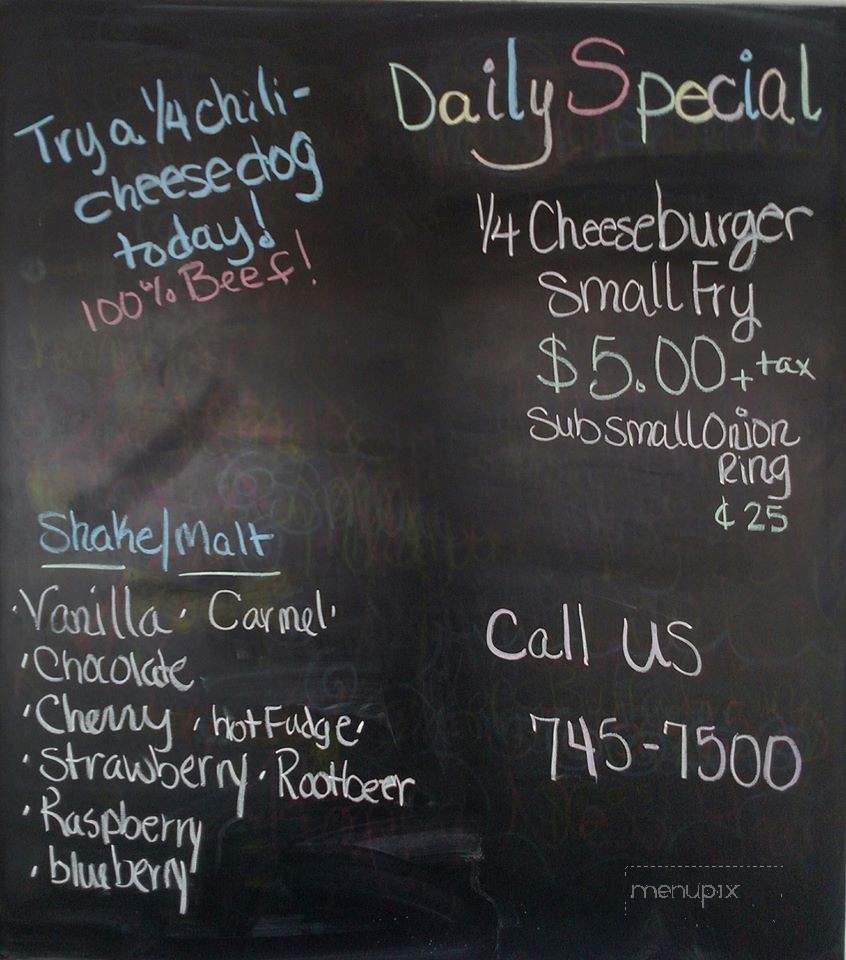 Try a 1/4 chili-
cheese dog
today!
100% Beef!
Daily Special
1/4 Cheeseburger
Small Fry
$5.00 + tax
Sub small Onion
Ring
¢ 25
Shake/Malt
· Vanilla · Carmel ·
· Chocolate
· Cherry · hot Fudge ·
· Strawberry · Rootbeer
· Raspberry
· blueberry
Call us
745-7500
menupix